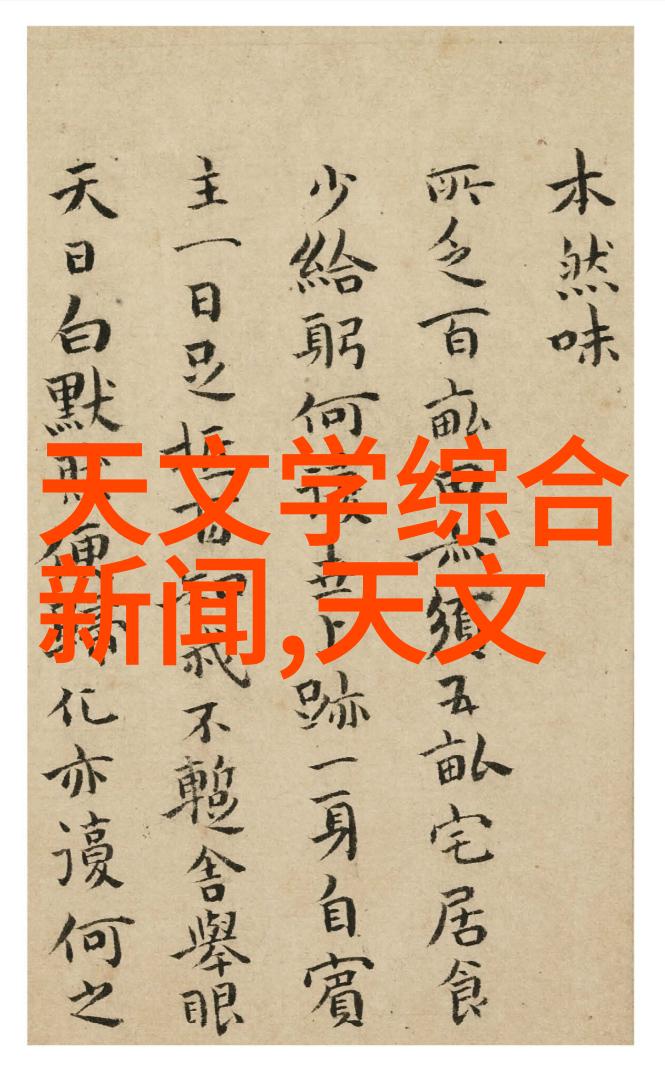 天文学综合
新闻,天文
本然味
所乏百畝田無須五畝宅居食
少給躬何跡一身自賓
主一日足不暫舍舉眼
天日白默默便化亦復何之